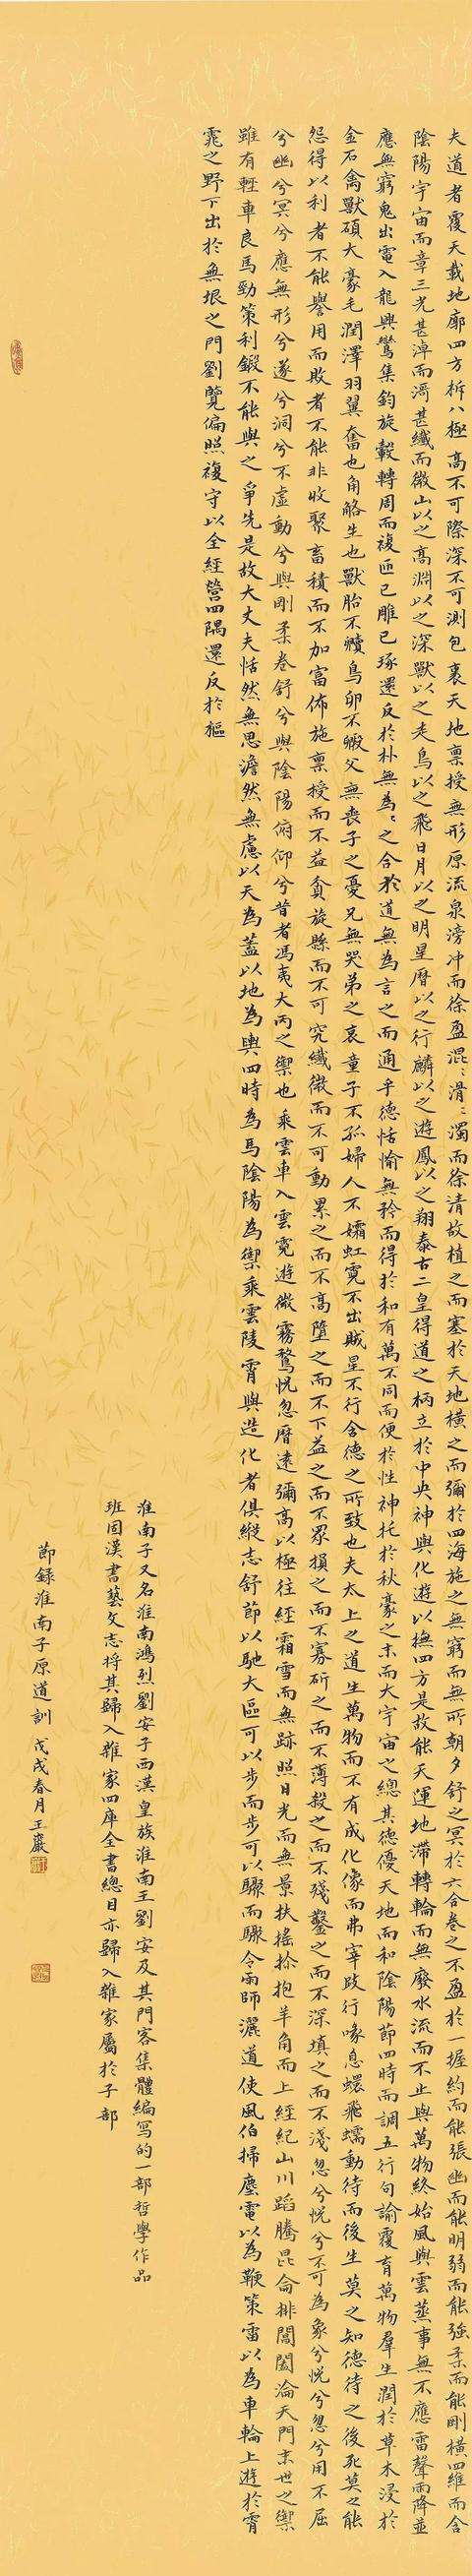 夫道者覆天載地廓四方柝八極高不可際深不可測包裹天地稟授無形原流泉滂沖而徐盈混〻滑〻濁而徐清故植之而塞於天地橫之而彌於四海施之無窮而無所朝夕舒之冥於六合卷之不盈於一握約而能張幽而能明弱而能強柔而能剛橫四維而含
陰陽宇宙而章三光甚淖而滒甚纖而微山以之高淵以之深獸以之走鳥以之飛日月以之明星曆以之行麟以之遊鳳以之翔泰古二皇得道之柄立於中央神與化遊以撫四方是故能天運地滯轉輪而無廢水流而不止與萬物終始風與雲蒸事無不應雷聲雨降並
應無窮鬼出電入龍興鸞集鈞旋轂轉周而複匝已雕已琢還反於朴無為〻之合於道無為言之而通乎德恬愉無矜而得於和有萬不同而便於性神托於秋豪之末而大宇宙之總其德優天地而和陰陽節四時而調五行呴諭覆育萬物羣生潤於草木浸於
金石禽獸碩大豪毛潤澤羽翼奮也角觡生也獸胎不贕鳥卵不毈父無喪子之憂兄無哭弟之哀童子不孤婦人不孀虹霓不出賊星不行含德之所致也夫太上之道生萬物而不有成化像而弗宰跂行喙息蠉飛蠕動待而後生莫之知德待之後死莫之能
怨得以利者不能譽用而敗者不能非收聚畜積而不加富佈施稟授而不益貧旋縣而不可究纖微而不可動累之而不高墮之而不下益之而不眾損之而不寡斫之而不薄殺之而不殘鑿之而不深填之而不淺忽兮怳兮不可為象兮怳兮忽兮用不屈
兮幽兮冥兮應無形兮遂兮洞兮不虛動兮與剛柔卷舒兮與陰陽俯仰兮昔者馮夷大丙之禦也乘雲車入雲霓遊微霧騖怳忽曆遠彌高以極往經霜雪而無跡照日光而無景扶搖抮抱羊角而上經紀山川蹈騰昆侖排閶闔淪天門末世之禦
雖有輕車良馬勁策利鍛不能與之爭先是故大丈夫恬然無思澹然無慮以天為蓋以地為輿四時為馬陰陽為禦乘雲陵霄與造化者俱縱志舒節以馳大區可以步而步可以驟而驟令雨師灑道使風伯掃塵電以為鞭策雷以為車輪上遊於霄
雿之野下出於無垠之門劉覽偏照複守以全經營四隅還反於樞
淮南子又名淮南鴻烈劉安子西漢皇族淮南王劉安及其門客集體編寫的一部哲學作品
班固漢書藝文志將其歸入雜家四庫全書總目亦歸入雜家屬於子部
節錄淮南子原道訓 戊戌春月王巖